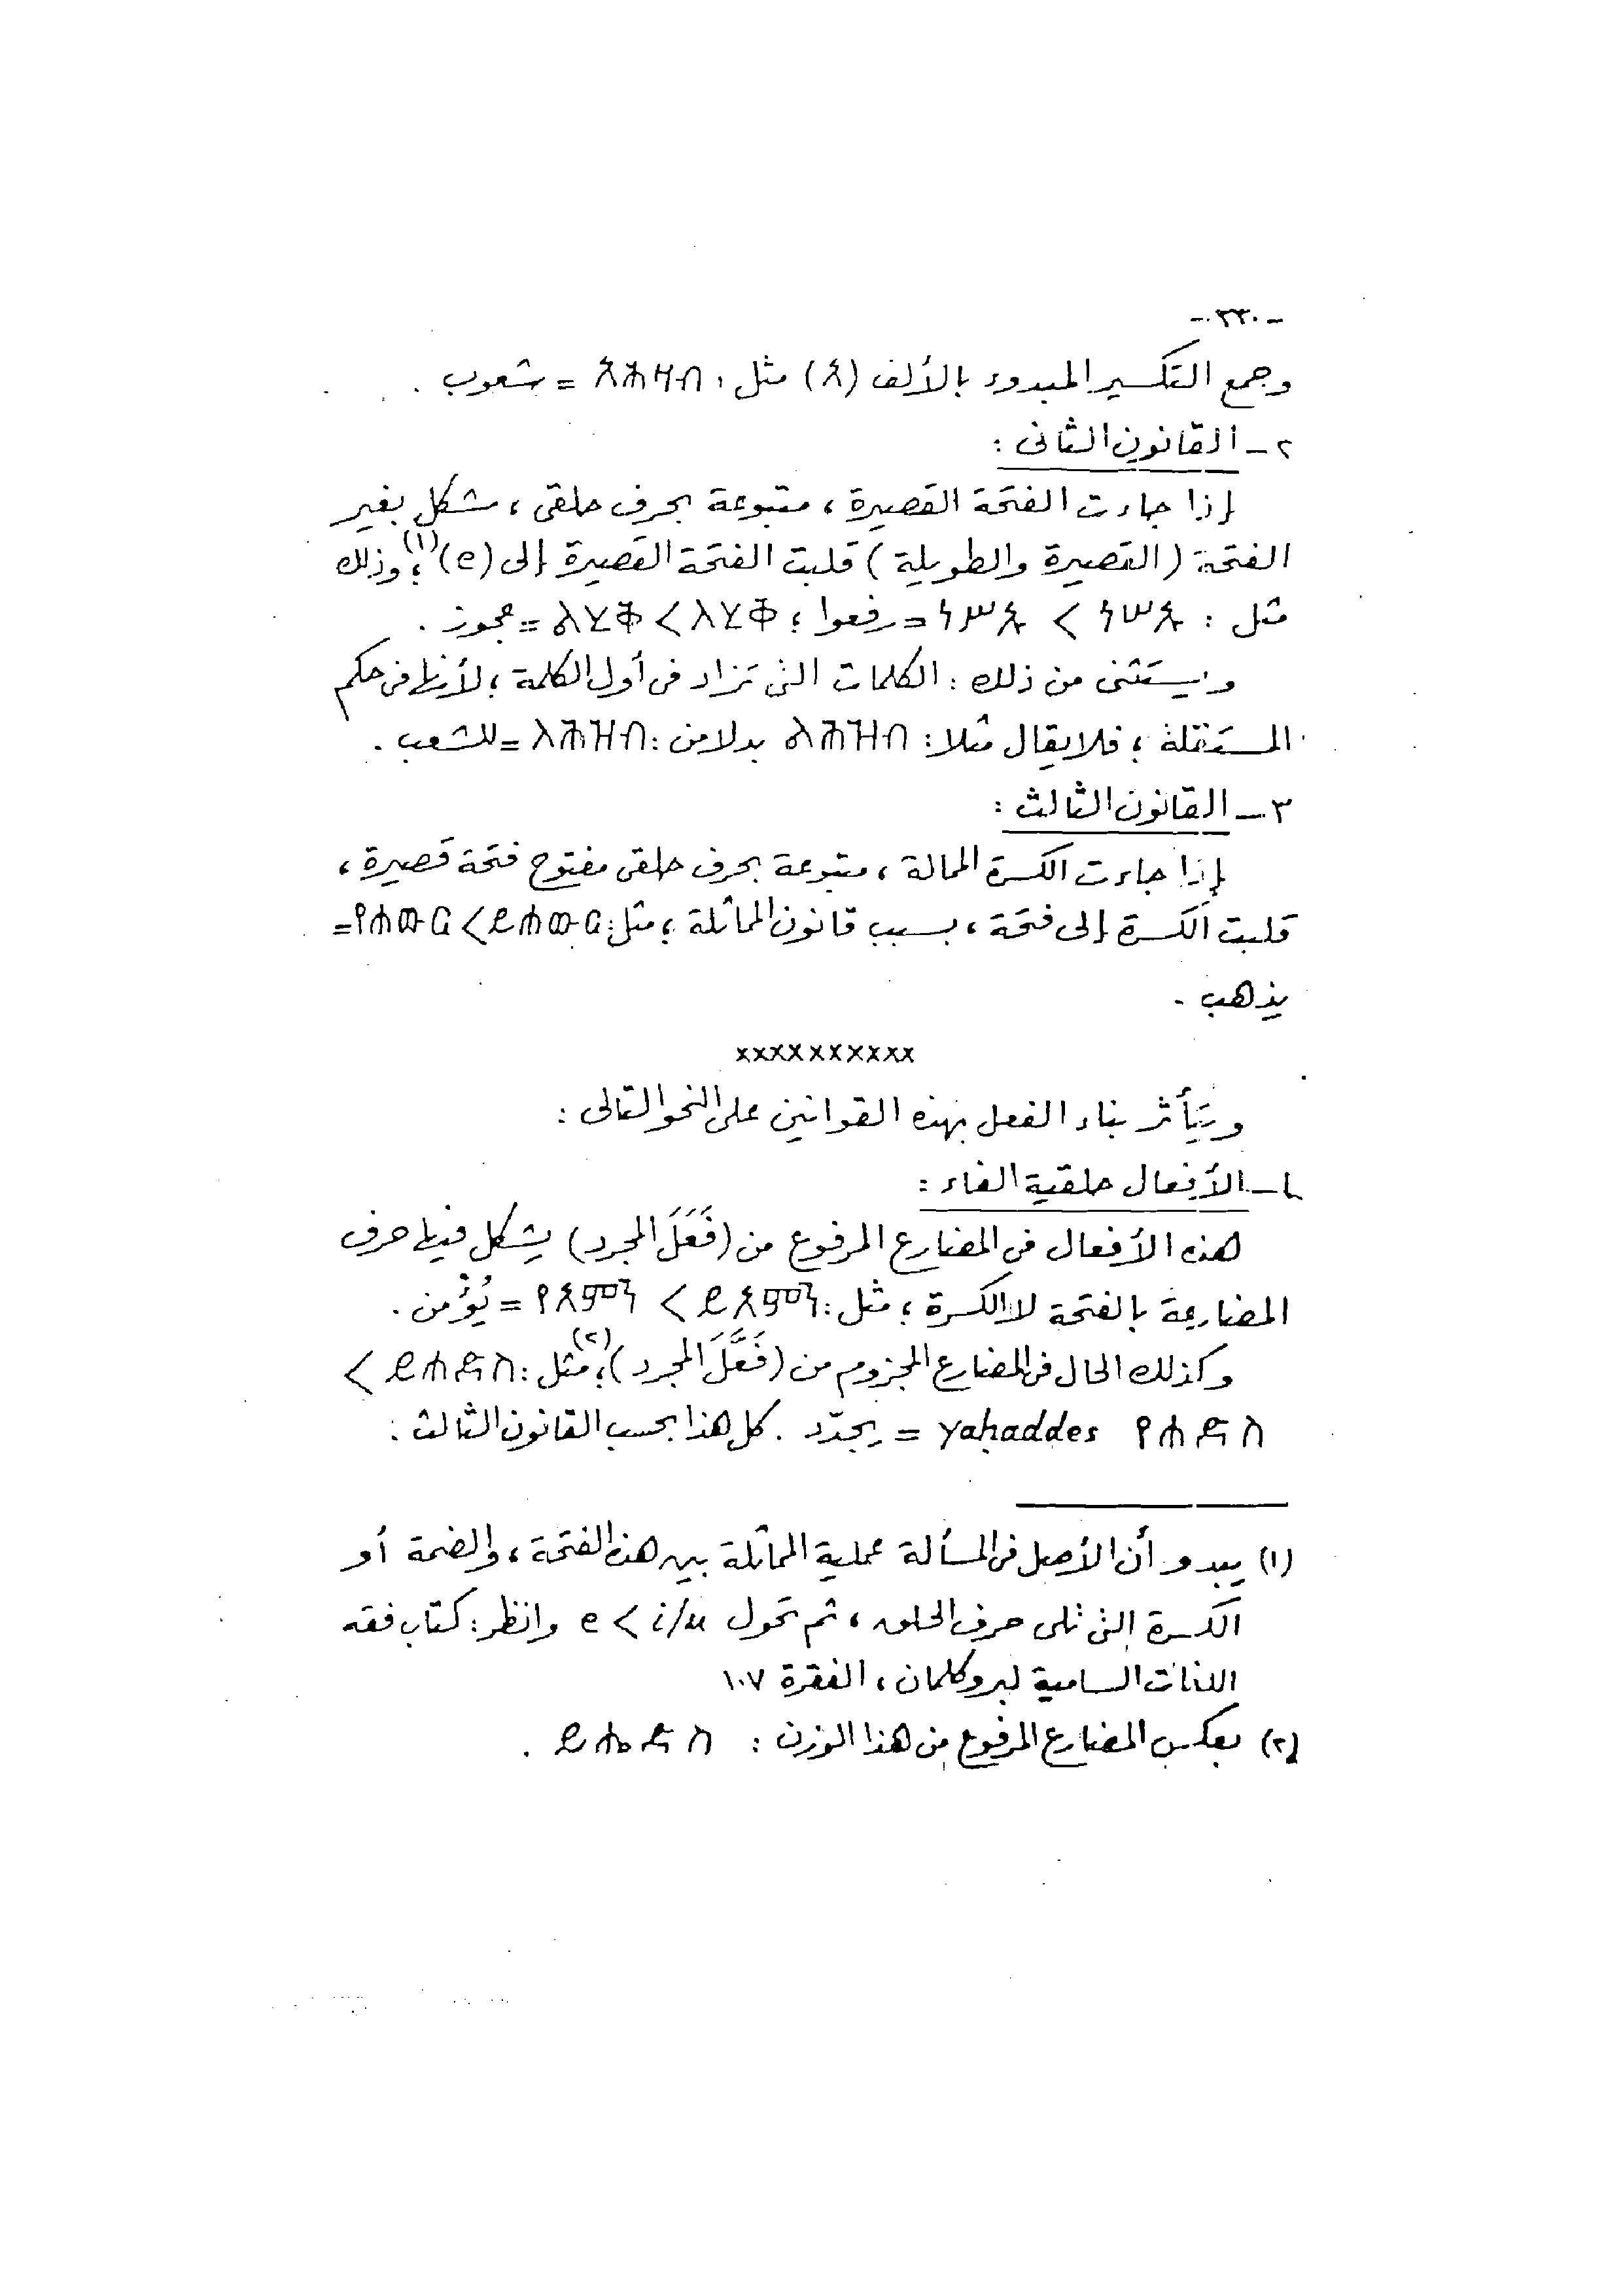 - ٣٣٠ -
وجمع التكسير المبدوء بالألف (አ) مثل : አሕዛብ = شعوب .
٢ - القانون الثانى :
إذا جاءت الفتحة القصيرة ، متبوعة بحرف حلقى ، شكل بغير
الفتحة (القصيرة والطويلة) قلبت الفتحة القصيرة إلى (e)(١) ؛ وذلك
مثل : = رفعوا ؛ ለሂቅ > ልሂቅ = عجوز .
ويستثنى من ذلك : الكلمات التى تزاد فى أول الكلمة ؛ لأنها فى حكم
المستقلة ؛ فلا يقال مثلا : ልሕዝብ بدلا من : ለሕዝብ = للشعب .
٣ - القانون الثالث :
إذا جاءت الكسرة الممالة ، متبوعة بحرف حلقى مفتوح فتحة قصيرة ،
قلبت الكسرة إلى فتحة ، بسبب قانون المماثلة ؛ مثل : ይሐውር > የሐውር =
يذهب .
xxxxxxxxxx
ويتأثر بناء الفعل بهذه القوانين على النحو التالى :
١ - الأفعال حلقية الفاء :
هذه الأفعال فى المضارع المرفوع من (فَعَلَ المجرد) يشكل فيها حرف
المضارعة بالفتحة لا الكسرة ؛ مثل : ይአምን > የአምን = يُؤْمن .
وكذلك الحال فى المضارع المجزوم من (فَعَّلَ المجرد)(٢) ؛ مثل : ይሐድስ >
የሐድስ yaḥaddes = يجدّد . كل هذا بحسب القانون الثالث .
(١) يبدو أن الأصل فى المسألة عملية المماثلة بين هذه الفتحة ، والضمة أو
الكسرة التى تلى حرف الحلق ، ثم تحول e < i/u وانظر : كتاب فقه
اللغات السامية لبروكلمان ، الفقرة ١٠٧
(٢) بعكس المضارع المرفوع من هذا الوزن : ይሔድስ .